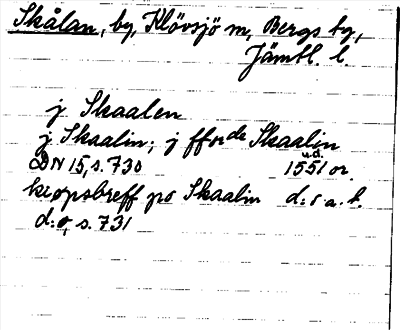 Skålan, by, Klövsjö m, Bergs tg,
Jämtl. l.
j Skaalen
j Skaalin; j fforde Skaalin
DN 15, s. 730 u.d. 1551 or.
kiøpsbreff po Skaalin d:o a.t.
d:o, s. 731